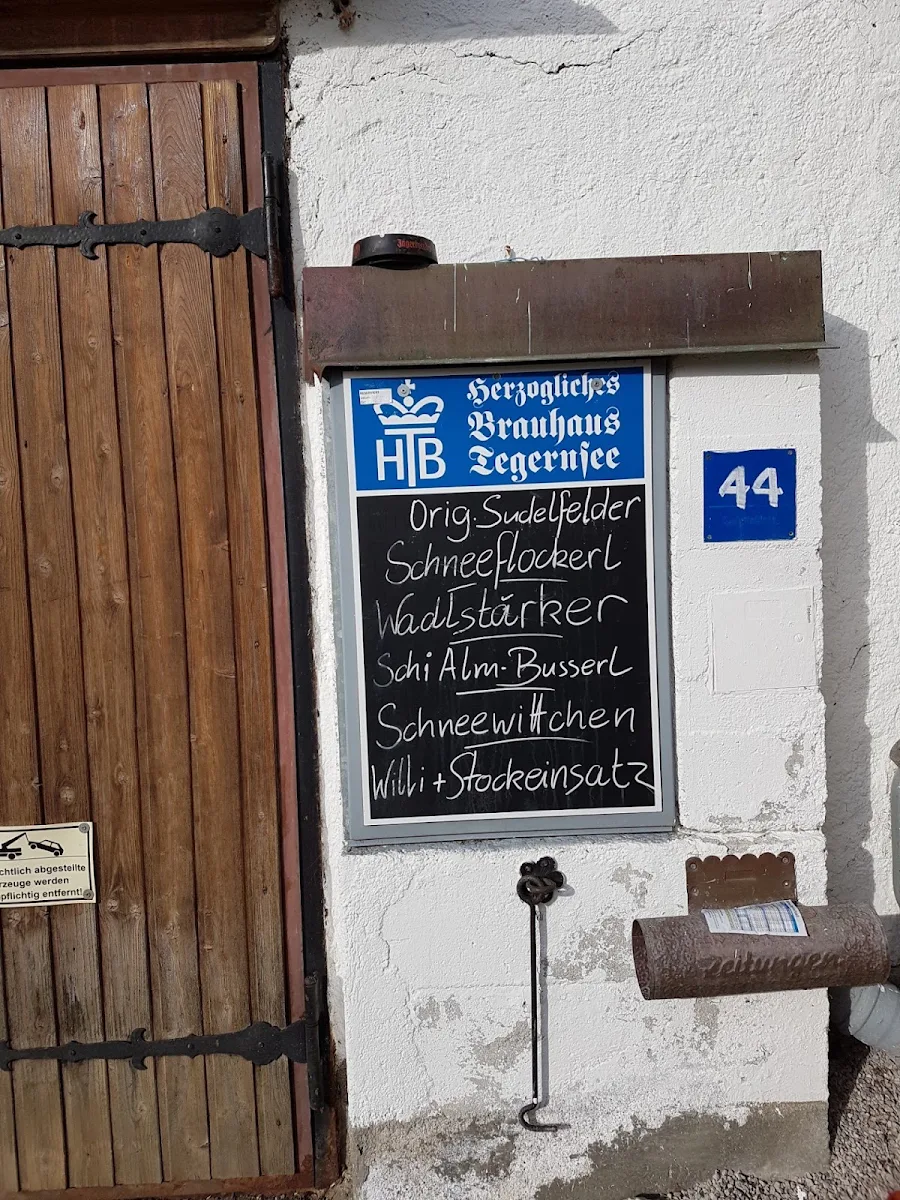 Jägermeister
Herzogliches
Brauhaus
Tegernsee
HTB
44
Orig. Sudelfelder
Schneeflockerl
Wadlstärker
Schi Alm-Busserl
Schneewittchen
Willi + Stockeinsatz
chtlich abgestellte
rzeuge werden
pflichtig entfernt!
Zeitungen